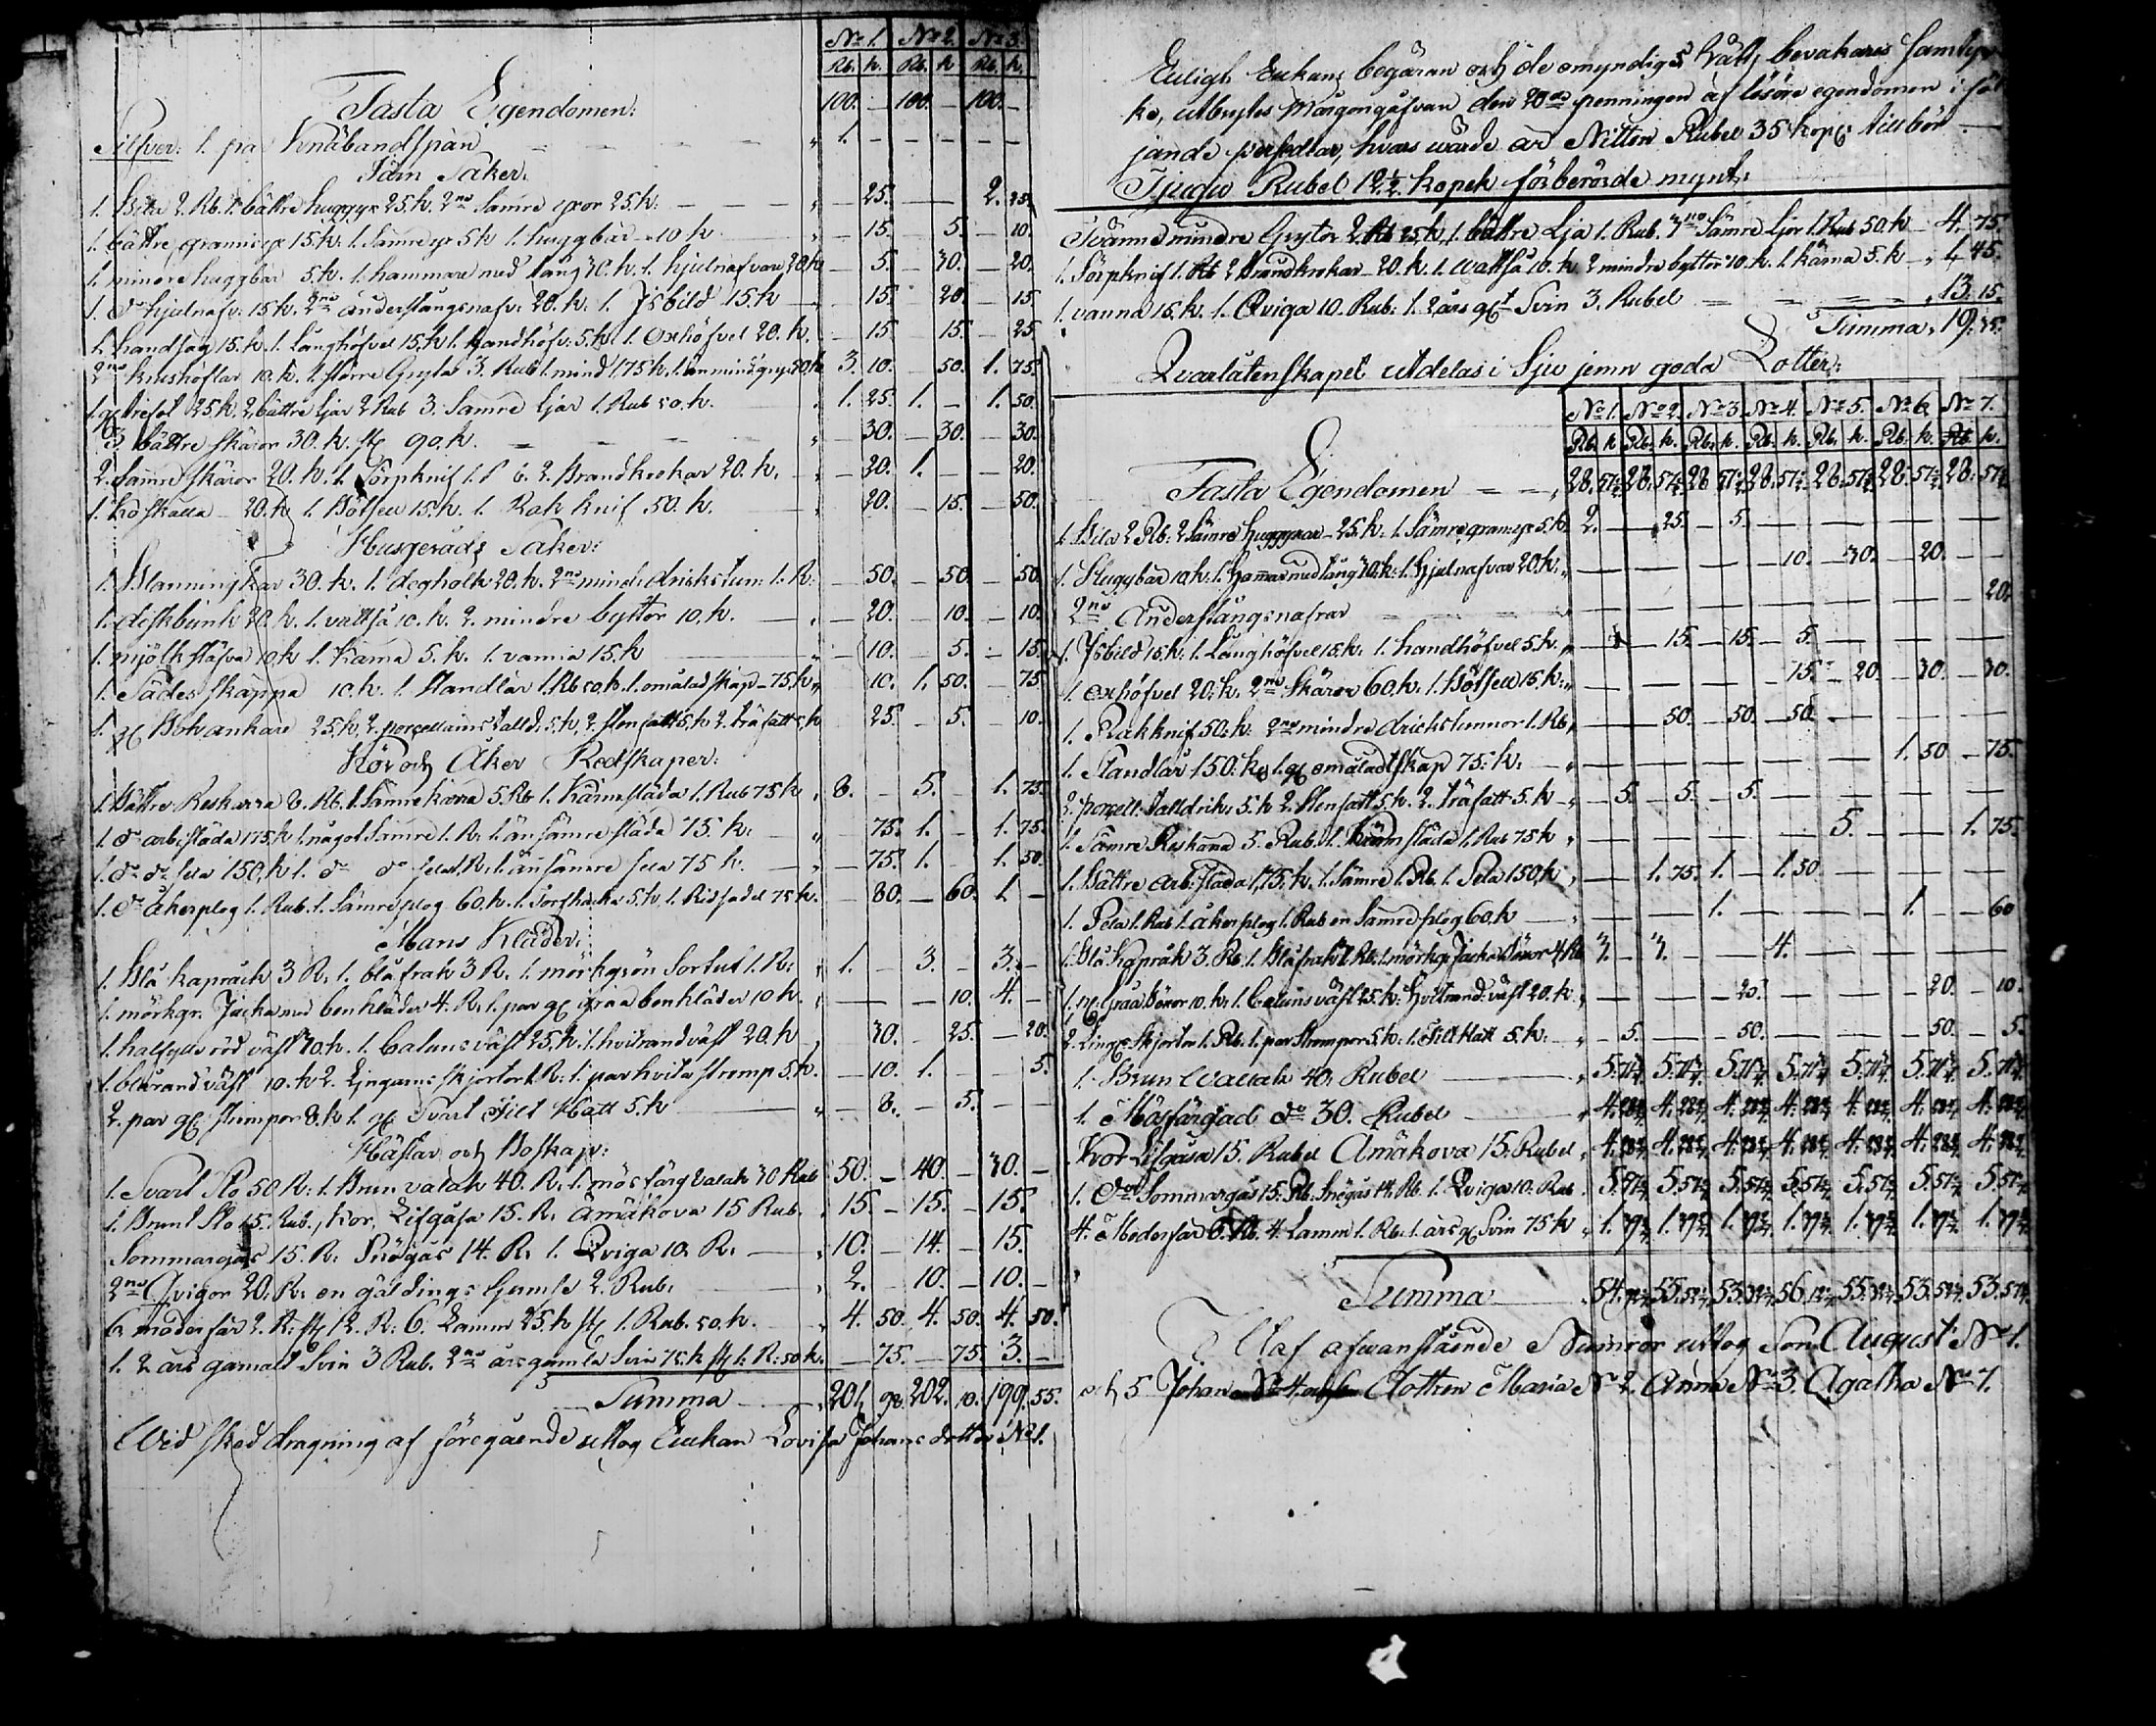 No 1. No 2. No 3.
Rb. k. Rb. k Rb. k.
Fasta Egendomen: 100. – 100. – 100. –
Silfver: 1. par Knäbandspän 1. – – – – –
Järn Saker.
1. Bila 2. Rb. 1. bättre huggyx 25. k. 2ne sämre yxor 25. k: – 25. – – 2. 25.
1. bättre grannsyx 15. k. 1. Sämre yx 5 k 1. huggbär 10 k – 15. – 5. – 10.
1. mindre huggbär 5 k. 1. hammare med tång 30. k. 1. hjulnafvare 20. k – 5. – 30. – 20.
1. do hjulnafv: 15 k. 2ne anderstångsnafv: 20. k. 1. Isbild 15. k – 15. – 20. – 15
1. handsag 15. k. 1. långhöfvel 15. k 1. handhöfv: 5. k. 1. Oxhöfvel 20. k. – 15. – 15. – 25
2ne krushöflar 10. k. 1. större Gryta 3. Rub 1. mind 1,75 k. 1. än mindre gryta 50 k 3. 10. – 50. 1. 75.
1. gl 25. k. 2. bättre Ljar 2 Rub 3. Sämre Ljar 1. Rub 50. k. 1. 25. 1. – 1. 50.
3. bättre skäror 30. k. st 90. k. – 30. – 30. – 30.
2. Sämre skäror 20. k. 1. Sörpknif 1. 2. Brandkrokar 20. k. – 20. 1. – – 20.
1. Koskälla 20. k 1. Bössell 15. k. 1. Rak knif 50. k. – 20. – 15. – 50.
Husgeråds Saker:
1. Blanningskar 30. k. 1. degholk 20. k. 2ne mind: drickstun: 1. R: – 50. – 50. – 50.
1. diskbunk 20. k. 1. vattså 10. k. 2. mindre byttor 10. k. – 20. – 10. – 10.
1. mjölkstäfva 10. k 1. Kärna 5. k. 1. vanna 15. k – 10. – 5. – 15.
1. Sädesskäppa 10. k. 1. Standlår 1. Rb 50. k. 1. omålad skåp 75. k 10. 1. 50. – 75.
1. gl Botnankare 25. k. 2. porcellains talld: 5. k. 2. stenfatt 5. k 2. träfatt 5. k 25. – 5. – 10.
Kör och Åker Redskaper:
1. Bättre Reskärra 8. Rb. 1. Sämre kärra 5. Rb 1. Kärnsläda 1. Rub 75 k 8. – 5. – 1. 75.
1. do arbetsläda 1 75. k 1. något Sämre 1. R. 1. än sämre släda 75. k: – 75. 1. – 1. 75.
1. do do sela 1 50. k 1. do do sela 1. R. 1. än sämre sela 75 k. – 75. 1. – 1. 50.
1. do åkerplog 1. Rub. 1. Sämre plog 60. k. 1. Torfhacka 5. k. 1. Ridsadel 75 k. – 80. – 60. 1. –
Mans Kläder:
1. Blå kapråck 3 R. 1. blå frak 3 R. 1. mörkgrön Sortut 1. R: 1. – 3. – 3. –
1. mörkgr. Jacka med benkläder 4. R. 1. par gl gråa benkläder 10 k. – – – 10. 4. –
1. halfylle röd väst 30. k. 1. Calmus väst 25. k. 1. hvitrand väst 20. k 30. – 25. – 20.
1. blårand väst 10. k 2. Lingarns skjortor 1. R: 1. par hvita stromp 5. k. – 10. 1. – – 5.
2. par gl strumpor 8. k 1. gl Svart Filt Hatt 5. k – 8. – 5. – –
Hästar och Boskap:
1. Svart Sto 50 R: 1. Brun valak 40. R. 1. mösfärg valak 30 Rub 50. – 40. – 30. –
1. Brunt Sto 15. Rub., Kor, Lifgåsa 15. R. Ämäkova 15 Rub. 15. – 15. – 15.
Sommargås 15. R: Snögås 14. R. 1. Qviga 10. R. 10. – 14. – 15.
2ne Qvigor 20. R. en gäldings Gumse 2. Rub. 2. – 10. – 10. –
6 moderfår 2. R: st 12. R: 6. Lamm 25. k st 1. Rub. 50. k. 4. 50. 4. 50. 4. 50.
1. 2 års gamalt Svin 3 Rub. 2ne års gamla Svin 75. k st 1. R: 50. k. – 75. – 75. 3. –
Summa 201. 98. 202. 10. 199. 55.
Wid skedd dragning af föregående uttog Enkan Lovisa Johans dotter No 1.
Enligt Enkans begäran och de omyndiges Rätts bevakares samtyc-
ke, utbrytes Morgongåfvan den 20de penningen af lösöre egendomen i föl
jande persedlar, hvars wärde är Nitton Rubel 35 kop: tillbör
Tjugu Rubel 12 1/2 kopek förberörde mynt.
Tvänne mindre Grytor 2. Rb 25 k, 1. bättre Lja 1. Rub. 3ne Sämre Ljor 1. Rub 50. k 4. 75.
1. Sörpknif 1. Rb 2 Brandkrokar 20. k. 1. wattså 10. k. 2 mindre byttor 10. k. 1. kärna 5. k 1. 45.
1. vanna 15. k. 1. Qviga 10. Rub: 1. 2 års glt Svin 3. Rubel 13. 15.
Summa 19. 35.
Qvarlåtenskapet utdelas i Sju jemn goda Lotter:
No 1. No 2. No 3. No 4. No 5. No 6. No 7.
Rb. k Rb. k. Rb. k. Rb. k. Rb. k. Rb. k. Rb. k.
Fasta Egendomen 28. 57 1/7 28. 57 1/7 28 57 1/7 28. 57 1/7 28. 57 1/7 28. 57 1/7 28. 57 1/7
1. Bila 2 Rb: 2 Sämre huggyxor 25. k: 1. Sämre granns yx 5. k 2. – – 25. – 5. – – – – – – – –
1. Huggbär 10. k: 1. hammar med tång 30. k: 1. hjulnafvar 20. k: – – – – – – – 10. – 30. – 20. – –
2ne Anderstångsnafrar – – – – – – – – – – – – – 20.
1. Isbild 15. k: 1. Långhöfvel 15. k: 1. handhöfvel 5. k. – – – 15. – 15. – 5. – – – – – –
1. oxhöfvel 20. k. 2ne Skäror 60. k. 1. Bössell 15. k: – – – – – – – 15. – 20. – 30. – 30.
1. Rakknif 50. k. 2ne mindre drickstunnor 1. Rb – – – 50. – 50. – 50. – – – – – –
1. Standlår 1 50. k 1. gl omåladt skåp 75. k. – – – – – – – – – – 1. 50 – 75.
2. porcell. talldrik: 5. k 2. Stenfatt 5. k. 2. träfatt 5. k – 5. – 5. – 5. – – – – – – – –
1. Sämre Reskärra 5. Rub. 1. Kärnsläda 1. Rub 75 k – – – – – – – – 5. – – – 1. 75.
1. Bättre arb: släda 1,75. k. 1. Sämre 1. Rb. 1. Sela 1 50. k – – 1. 75. 1. – 1. 50. – – – – – –
1. Sela 1. Rub 1. åkerplog 1. Rub en Sämre plog 60. k – – – – 1. – – – – – 1. – – 60
1. Blå Kapråk 3. Rb. 1. Blå frak 3 Rb. 1. mörkgr Jacka Böxor 4 Rb 3. – 3. – – – 4. – – – – – – –
1. gl Gråa böxor 10. k. 1. Calmus väst 25. k: hvitrand: väst 20. k. – – – – – 25. – – – – – 20. – 10.
2. Ling: Skjortor 1. Rb. 1. par Strumpor 5. k: 1. Filt Hatt 5. k: – 5. – – – 50. – – – – – 50. – 5.
1. Brun Wallak 40. Rubel 5. 71 3/7 5. 71 3/7 5. 71 3/7 5. 71 3/7 5. 71 3/7 5. 71 3/7 5. 71 3/7
1. Mösfärgad do 30. Rubel 4. 28 4/7 4. 28 4/7 4. 28 4/7 4. 28 4/7 4. 28 4/7 4. 28 4/7 4. 28 4/7
Kor Lifgåsa 15. Rubel Ämäkova 15. Rubel 4. 28 4/7 4. 28 4/7 4. 28 4/7 4. 28 4/7 4. 28 4/7 4. 28 4/7 4. 28 4/7
1. do Sommargås 15. Rb. Snögås 14. Rb. 1. Qviga 10. Rub 5. 57 1/7 5. 57 1/7 5. 57 1/7 5. 57 1/7 5. 57 1/7 5. 57 1/7 5. 57 1/7
4. Moderfår 8. Rb. 4 Lamm 1. Rb. 1. års gl Svin 75 k 1. 39 2/7 1. 39 2/7 1. 39 2/7 1. 39 2/7 1. 39 2/7 1. 39 2/7 1. 39 2/7
Summa
Af afvanstående Numror uttog Son August No 1.
och 5 Johan No 4 och 6 Dottren Maria No 2. Anna No 3. Agatha No 7.